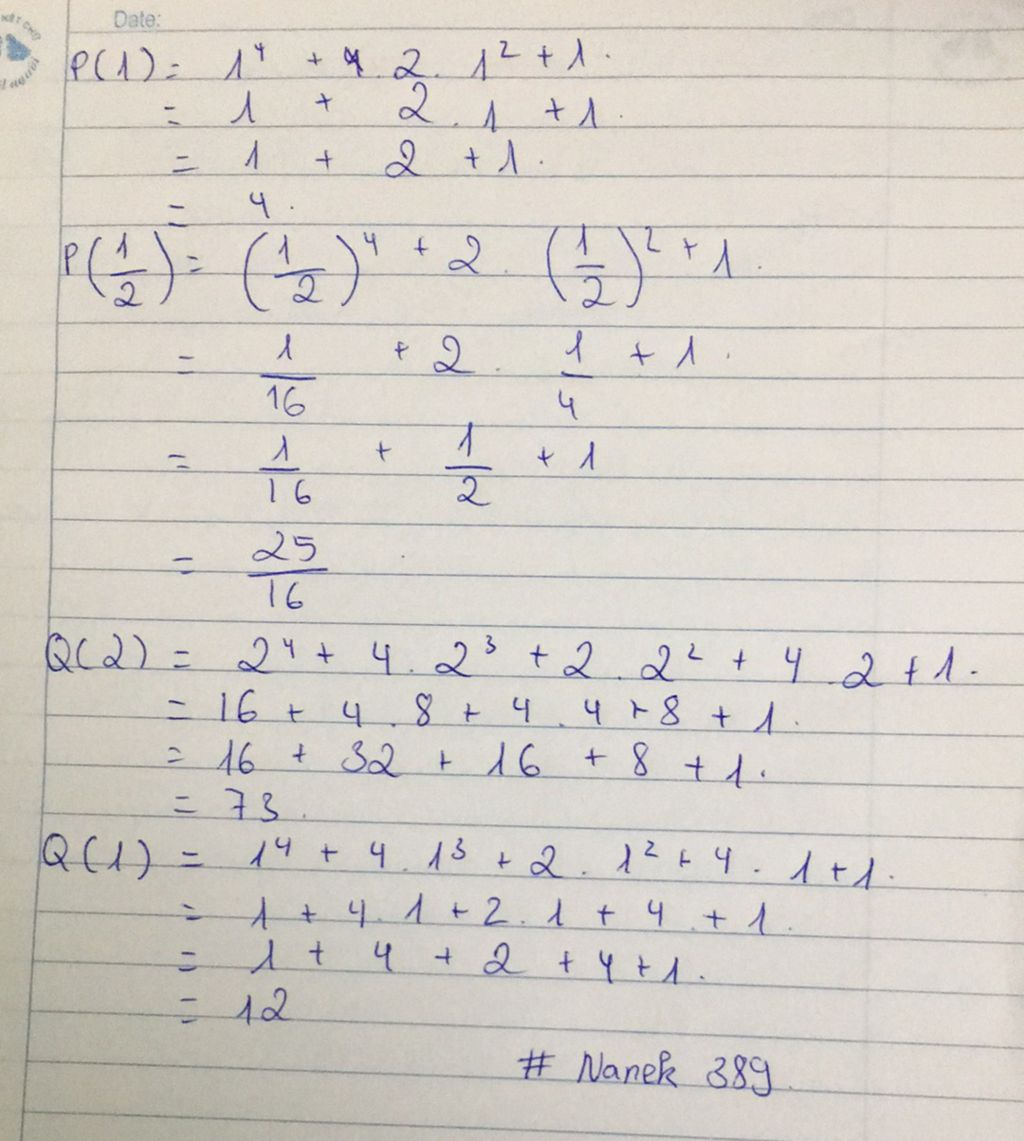 Date:
P(1) = 1⁴ + 4 . 2 . 1² + 1 .
= 1 + 2 . 1 + 1 .
= 1 + 2 + 1 .
= 4 .
P(1/2) = (1/2)⁴ + 2 . (1/2)² + 1 .
= 1/16 + 2 . 1/4 + 1 .
= 1/16 + 1/2 + 1
= 25/16
Q(2) = 2⁴ + 4 . 2³ + 2 . 2² + 4 . 2 + 1 .
= 16 + 4 . 8 + 4 . 4 + 8 + 1 .
= 16 + 32 + 16 + 8 + 1 .
= 73 .
Q(1) = 1⁴ + 4 . 1³ + 2 . 1² + 4 . 1 + 1 .
= 1 + 4 . 1 + 2 . 1 + 4 + 1 .
= 1 + 4 + 2 + 4 + 1 .
= 12
# Nanek 389 .